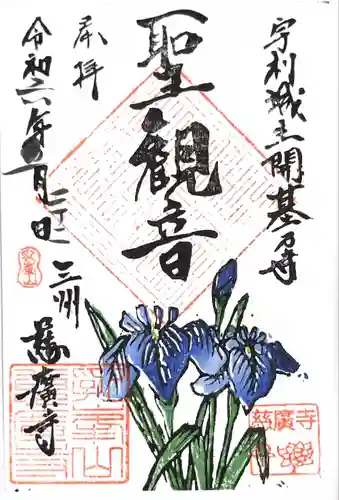 宇利城主開基乃寺
聖観音
奉拝
令和六年五月二十二日
三州
慈廣寺
慈廣寺